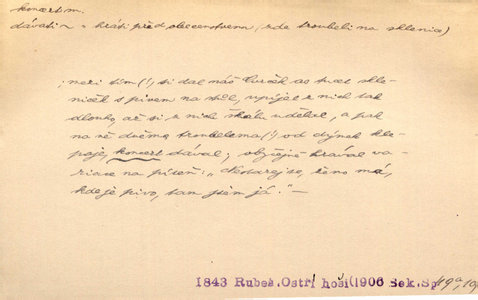 koncert m.
dávati ~ = hráti před obecenstvem (zde troubeli na sklenice)
; mezi tím (!) si dal náš Vurček as tucet skle-
niček s pivem na stůl, upíjel z nich tak
dlouho, až si z nich škálu udělal, a pak
na ně dvěma troubelema (!) od dýmek kle-
paje, koncert dával; obyčejně hrával va-
riace na píseň: „Nestarej se, ženo má,
kde je pivo, tam jsem já." —
1843 Rubeš. Ostří hoši (1906 Sek. Sp